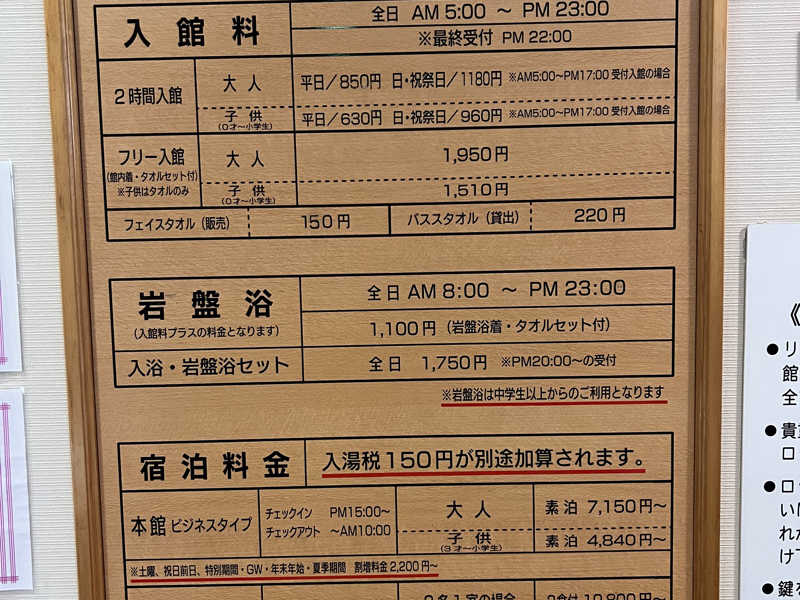 入館料
全日 AM 5:00 ～ PM 23:00
※最終受付 PM 22:00
2時間入館
大人
平日／850円 日・祝祭日／1180円 ※AM5:00～PM17:00 受付入館の場合
子供
(0才～小学生)
平日／630円 日・祝祭日／960円 ※AM5:00～PM17:00 受付入館の場合
フリー入館
(館内着・タオルセット付)
※子供はタオルのみ
大人
1,950円
子供
(0才～小学生)
1,510円
フェイスタオル（販売）
150円
バススタオル（貸出）
220円
岩盤浴
(入館料プラスの料金となります)
全日 AM 8:00 ～ PM 23:00
1,100円（岩盤浴着・タオルセット付）
入浴・岩盤浴セット
全日 1,750円 ※PM20:00～の受付
※岩盤浴は中学生以上からのご利用となります
宿泊料金
入湯税150円が別途加算されます。
本館 ビジネスタイプ
チェックイン PM15:00～
チェックアウト ～AM10:00
大人
素泊 7,150円～
子供
(3才～小学生)
素泊 4,840円～
※土曜、祝日前日、特別期間・GW・年末年始・夏季期間 割増料金 2,200円～
2名1室の場合
2食付 10,800円～
《
●リ
館
全
●貴
ロ
●ロ
い
れ
け
●鍵